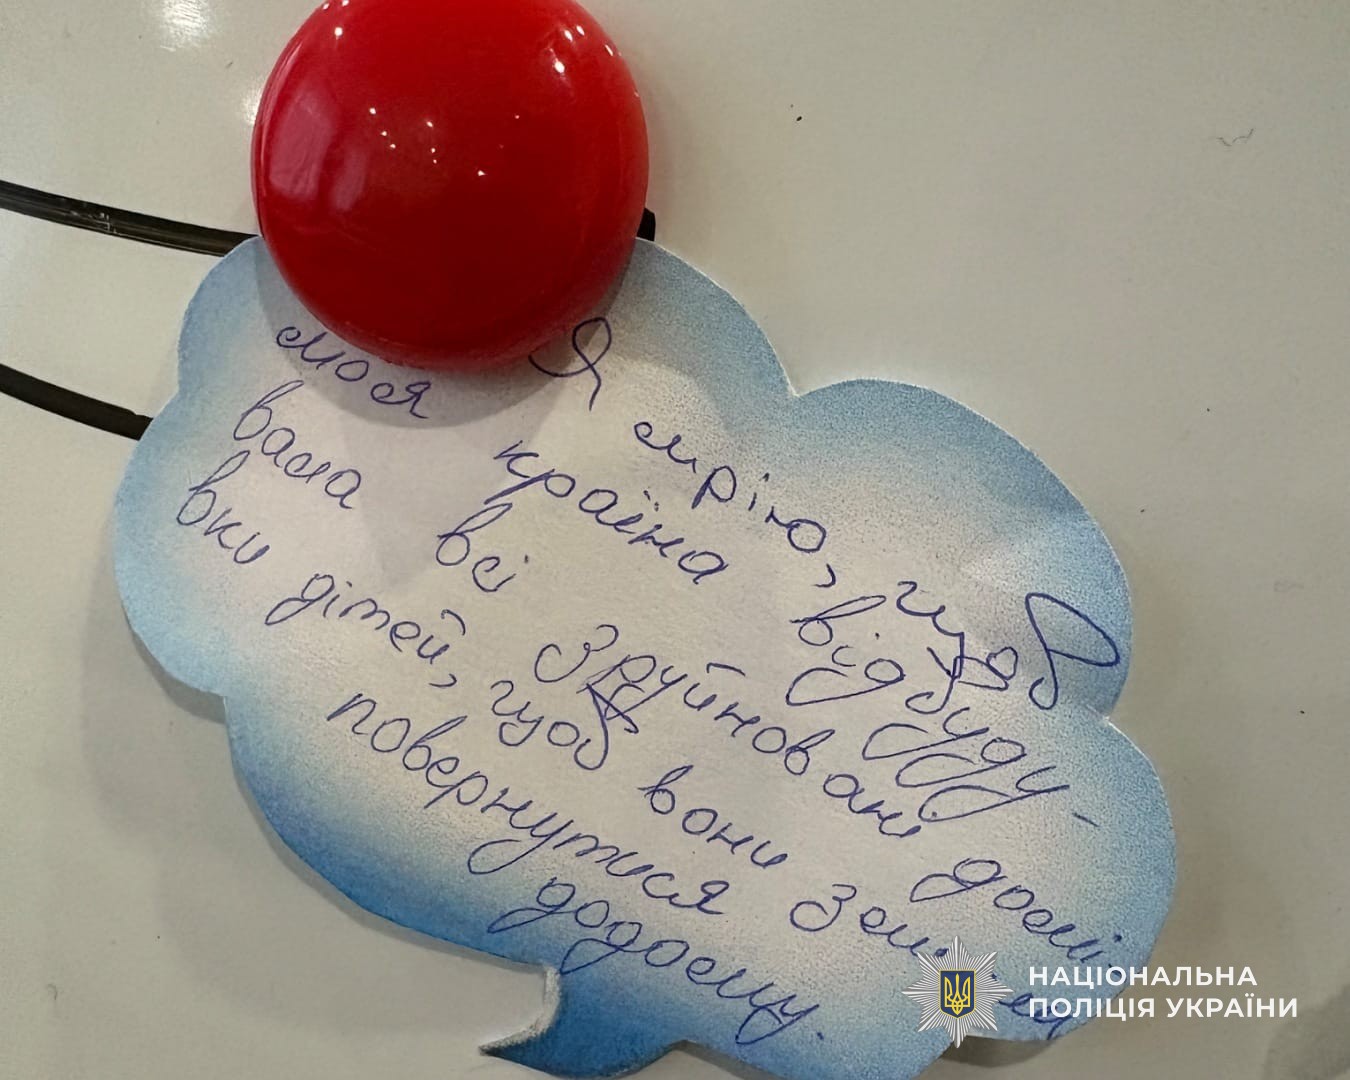 Я мрію, щоб
моя країна відбуду-
вала всі зруйновані домі-
вки дітей, щоб вони
повернутися
додому.
НАЦІОНАЛЬНА
ПОЛІЦІЯ УКРАЇНИ